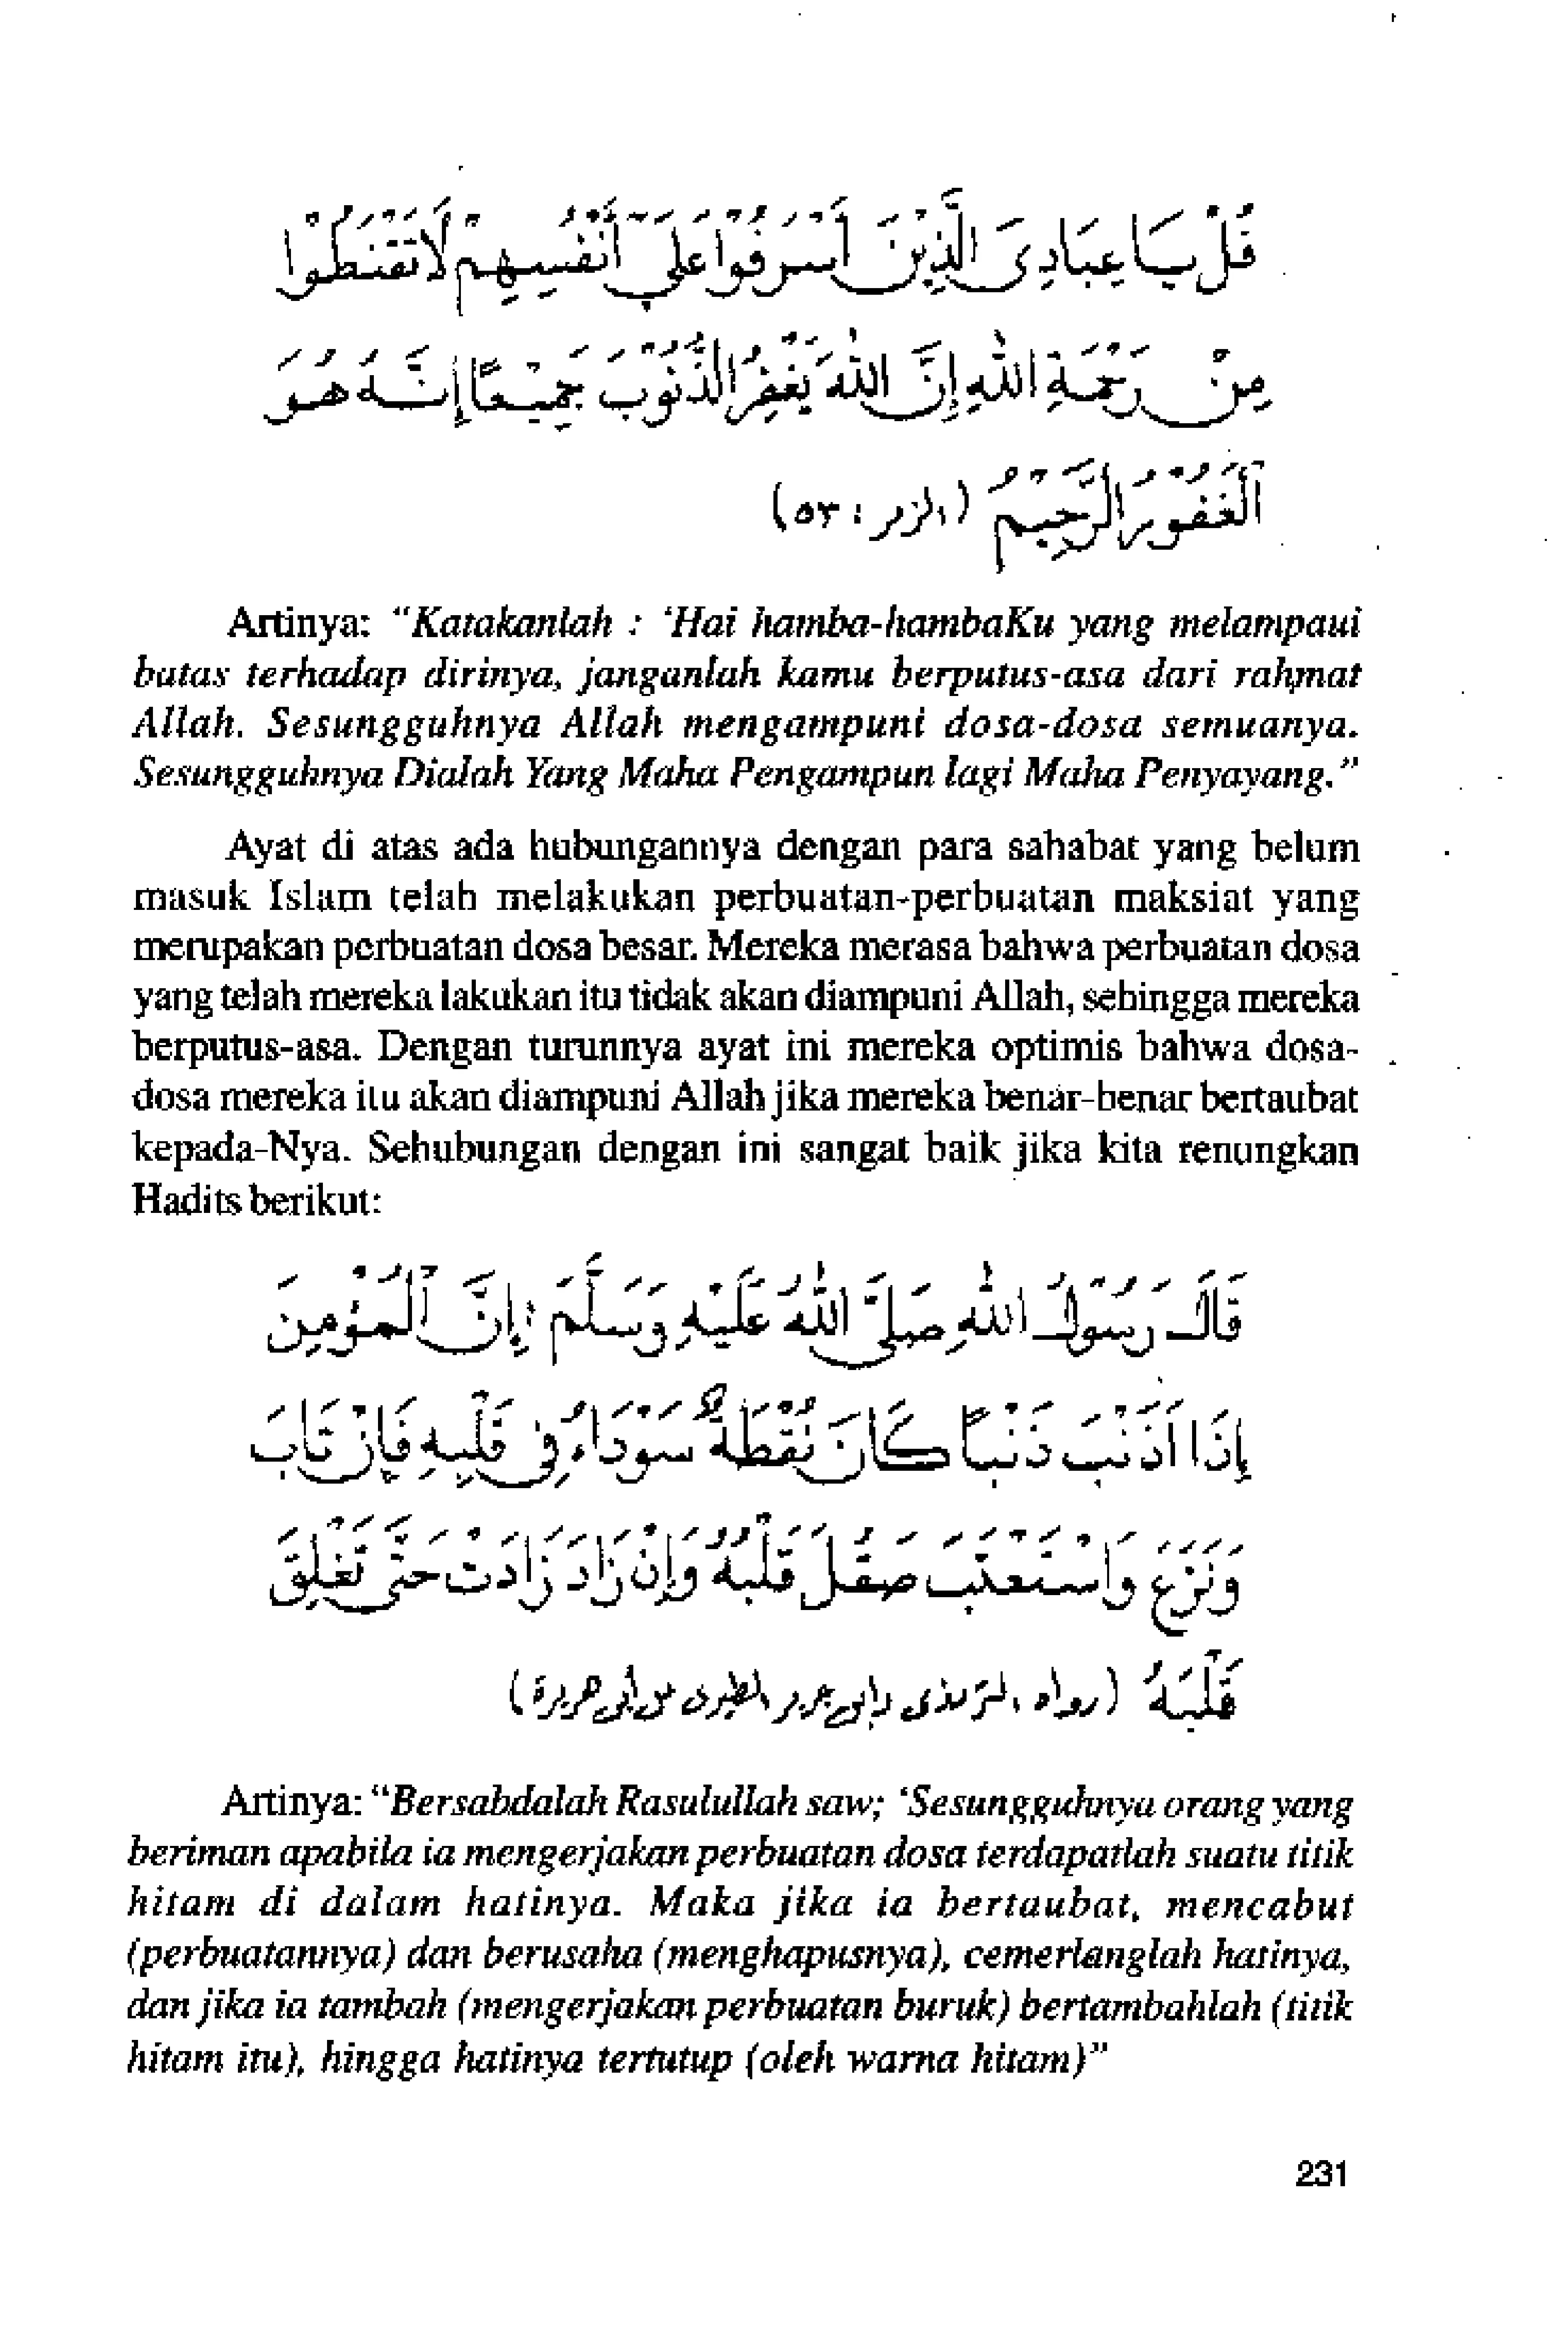 قُلْ يَا عِبَادِيَ الَّذِيْنَ أَسْرَفُوْا عَلَىٰٓ أَنْفُسِهِمْ لَا تَقْنَطُوْا
مِنْ رَحْمَةِ اللهِ إِنَّ اللهَ يَغْفِرُ الذُّنُوْبَ جَمِيْعًا إِنَّهُ هُوَ
اَلْغَفُوْرُ الرَّحِيْمُ (الزمر : ٥٣)
Artinya: "Katakanlah : 'Hai hamba-hambaKu yang melampaui
batas terhadap dirinya, janganlah kamu berputus-asa dari rahmat
Allah. Sesungguhnya Allah mengampuni dosa-dosa semuanya.
Sesungguhnya Dialah Yang Maha Pengampun lagi Maha Penyayang."
Ayat di atas ada hubungannya dengan para sahabat yang belum
masuk Islam telah melakukan perbuatan-perbuatan maksiat yang
merupakan perbuatan dosa besar. Mereka merasa bahwa perbuatan dosa
yang telah mereka lakukan itu tidak akan diampuni Allah, sehingga mereka
berputus-asa. Dengan turunnya ayat ini mereka optimis bahwa dosa-
dosa mereka itu akan diampuni Allah jika mereka benar-benar bertaubat
kepada-Nya. Sehubungan dengan ini sangat baik jika kita renungkan
Hadits berikut:
قَالَ رَسُوْلُ اللهِ صَلَّى اللهُ عَلَيْهِ وَسَلَّمَ : إِنَّ اَلْمُؤْمِنَ
إِذَا أَذْنَبَ ذَنْبًا كَانَ نُقْطَةٌ سَوْدَاءُ فِى قَلْبِهِ فَإِنْ تَابَ
وَنَزَعَ وَاسْتَعْتَبَ صَقُلَ قَلْبُهُ وَإِنْ زَادَ زَادَتْ حَتَّى تَغْلِقَ
قَلْبَهُ (رواه الترمذى وابى جرير الطبرى عن أبى هريرة)
Artinya: "Bersabdalah Rasulullah saw; 'Sesungguhnya orang yang
beriman apabila ia mengerjakan perbuatan dosa terdapatlah suatu titik
hitam di dalam hatinya. Maka jika ia bertaubat, mencabut
(perbuatannya) dan berusaha (menghapusnya), cemerlanglah hatinya,
dan jika ia tambah (mengerjakan perbuatan buruk) bertambahlah (titik
hitam itu), hingga hatinya tertutup (oleh warna hitam)"
231